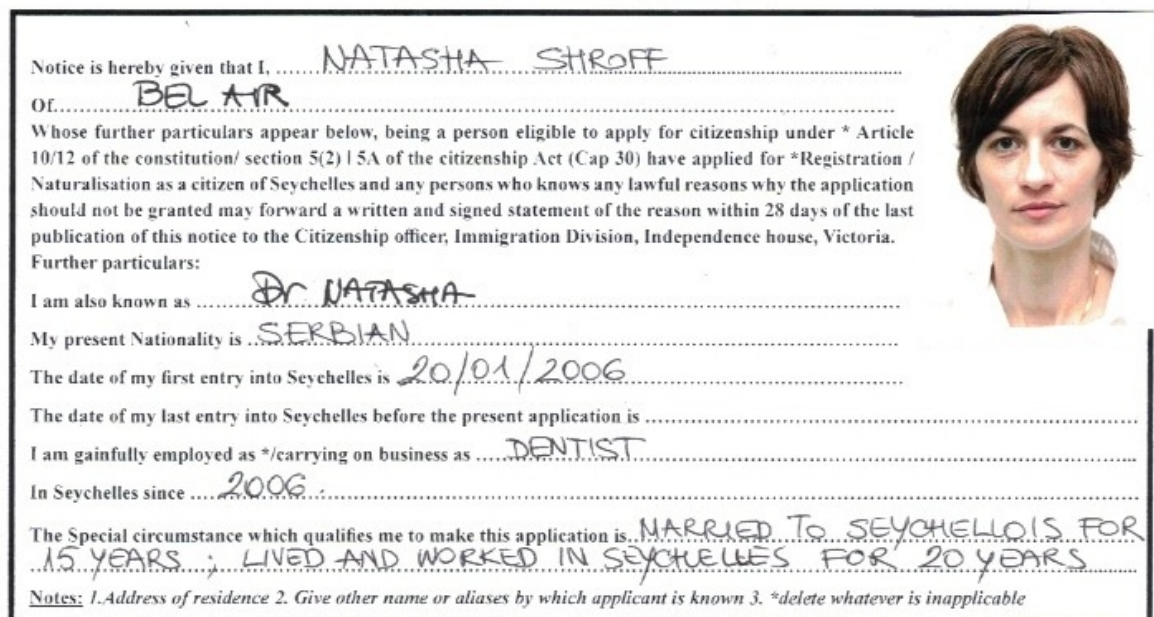 Notice is hereby given that I, NATASHA SHROFF
Of BEL AIR
Whose further particulars appear below, being a person eligible to apply for citizenship under * Article
10/12 of the constitution/ section 5(2) | 5A of the citizenship Act (Cap 30) have applied for *Registration /
Naturalisation as a citizen of Seychelles and any persons who knows any lawful reasons why the application
should not be granted may forward a written and signed statement of the reason within 28 days of the last
publication of this notice to the Citizenship officer, Immigration Division, Independence house, Victoria.
Further particulars:
I am also known as Dr NATASHA
My present Nationality is SERBIAN
The date of my first entry into Seychelles is 20/01/2006
The date of my last entry into Seychelles before the present application is
I am gainfully employed as */carrying on business as DENTIST
In Seychelles since 2006.
The Special circumstance which qualifies me to make this application is MARRIED TO SEYCHELLOIS FOR
15 YEARS ; LIVED AND WORKED IN SEYCHELLES FOR 20 YEARS
Notes: 1.Address of residence 2. Give other name or aliases by which applicant is known 3. *delete whatever is inapplicable